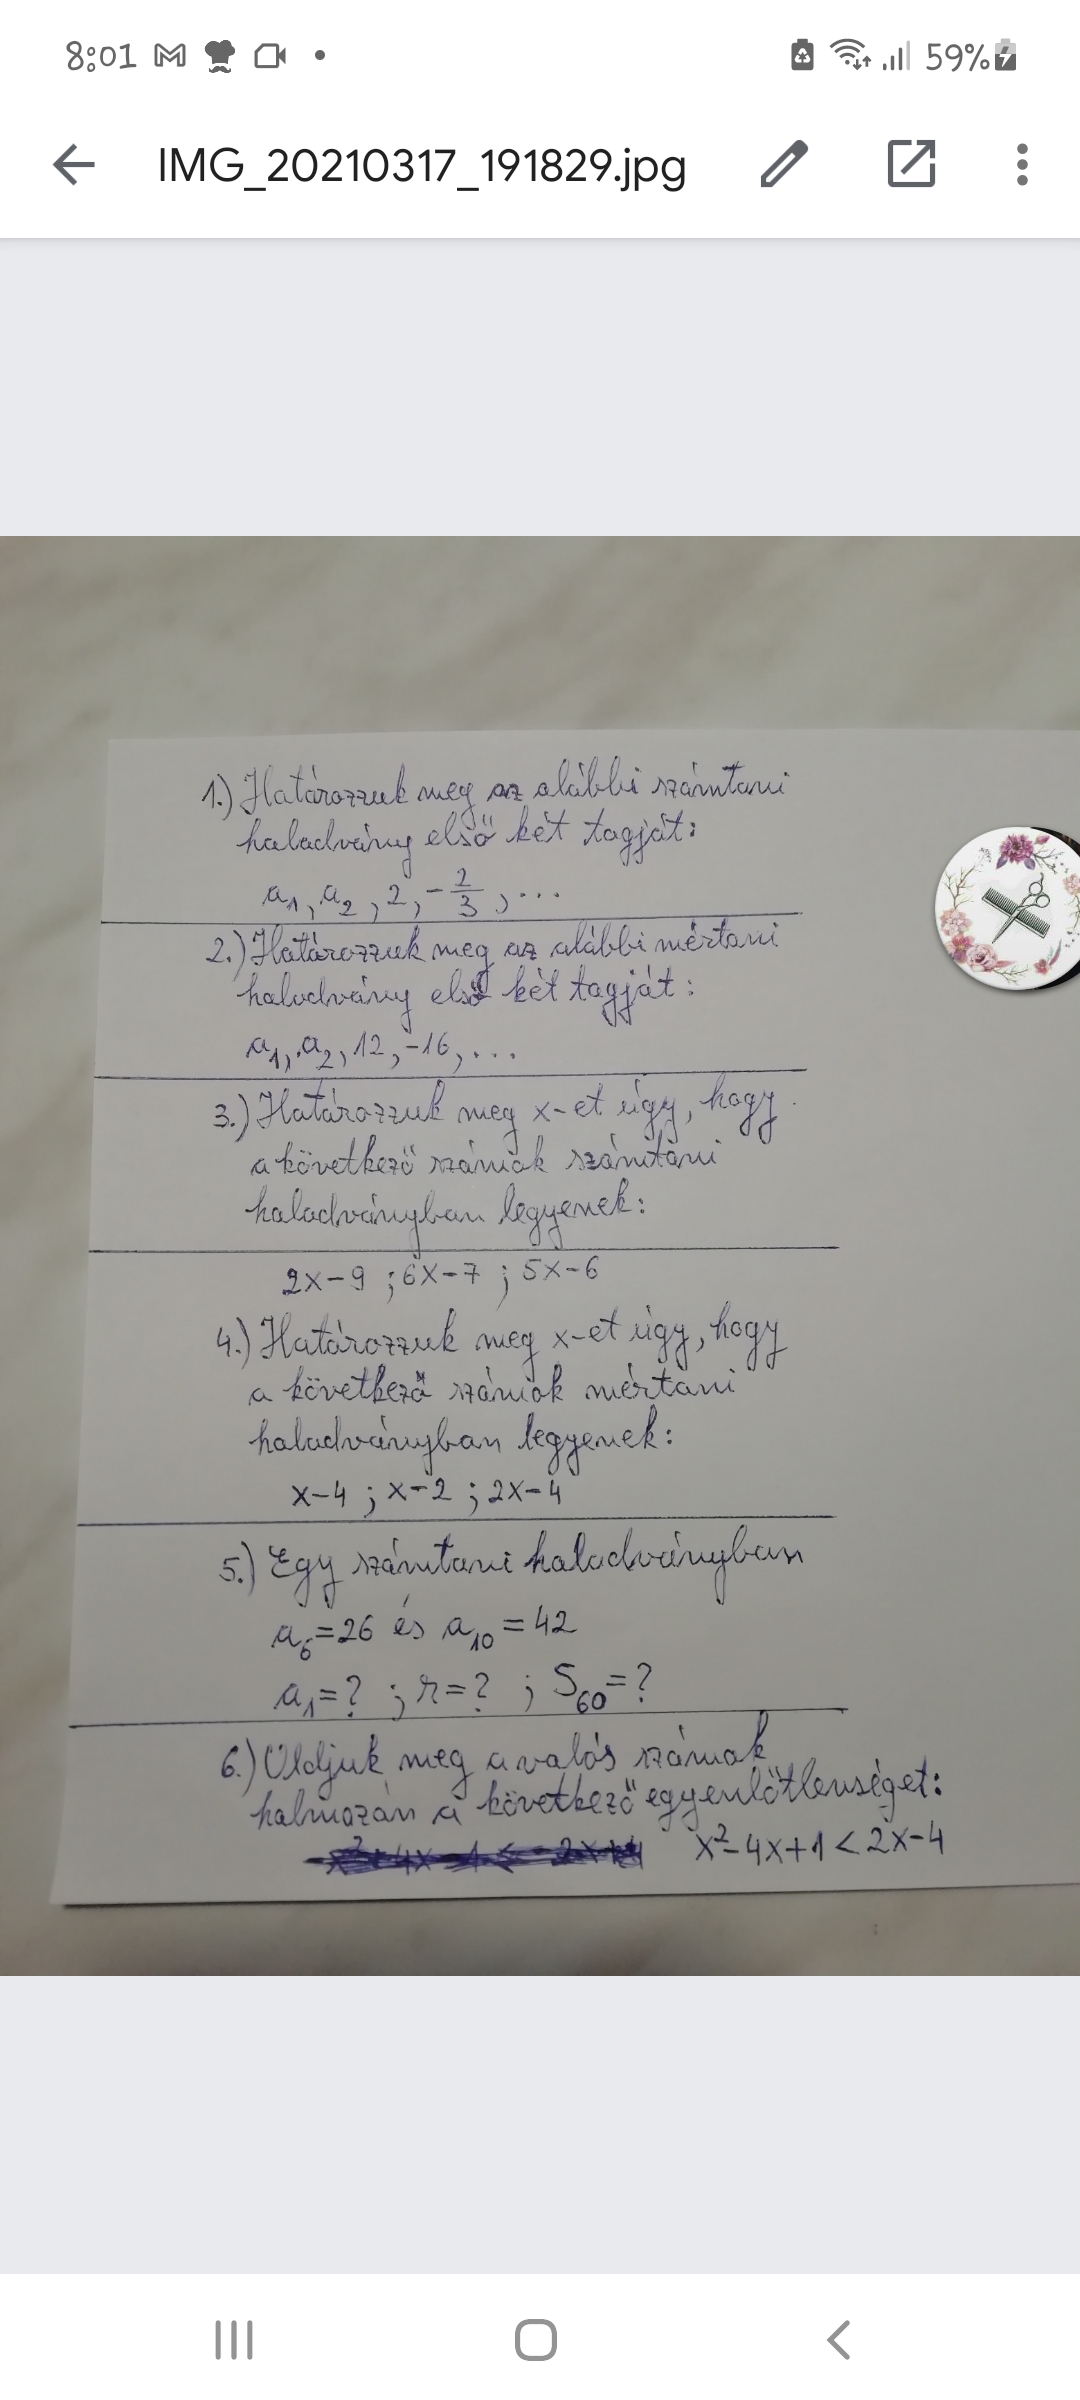 8:01 59%
IMG_20210317_191829.jpg
1.) Határozzuk meg az alábbi számtani
haladvány első két tagját:
a₁, a₂, 2, -2/3, ...
2.) Határozzuk meg az alábbi mértani
haladvány első két tagját:
a₁, a₂, 12, -16, ...
3.) Határozzuk meg x-et úgy, hogy
a következő számok számtani
haladványban legyenek:
2x-9 ; 6x-7 ; 5x-6
4.) Határozzuk meg x-et úgy, hogy
a következő számok mértani
haladványban legyenek:
x-4 ; x-2 ; 2x-4
5.) Egy számtani haladványban
a₆=26 és a₁₀=42
a₁=? ; r=? ; S₆₀=?
6.) Oldjuk meg a valós számok
halmazán a következő egyenlőtlenséget:
x²-4x+1<2x-4